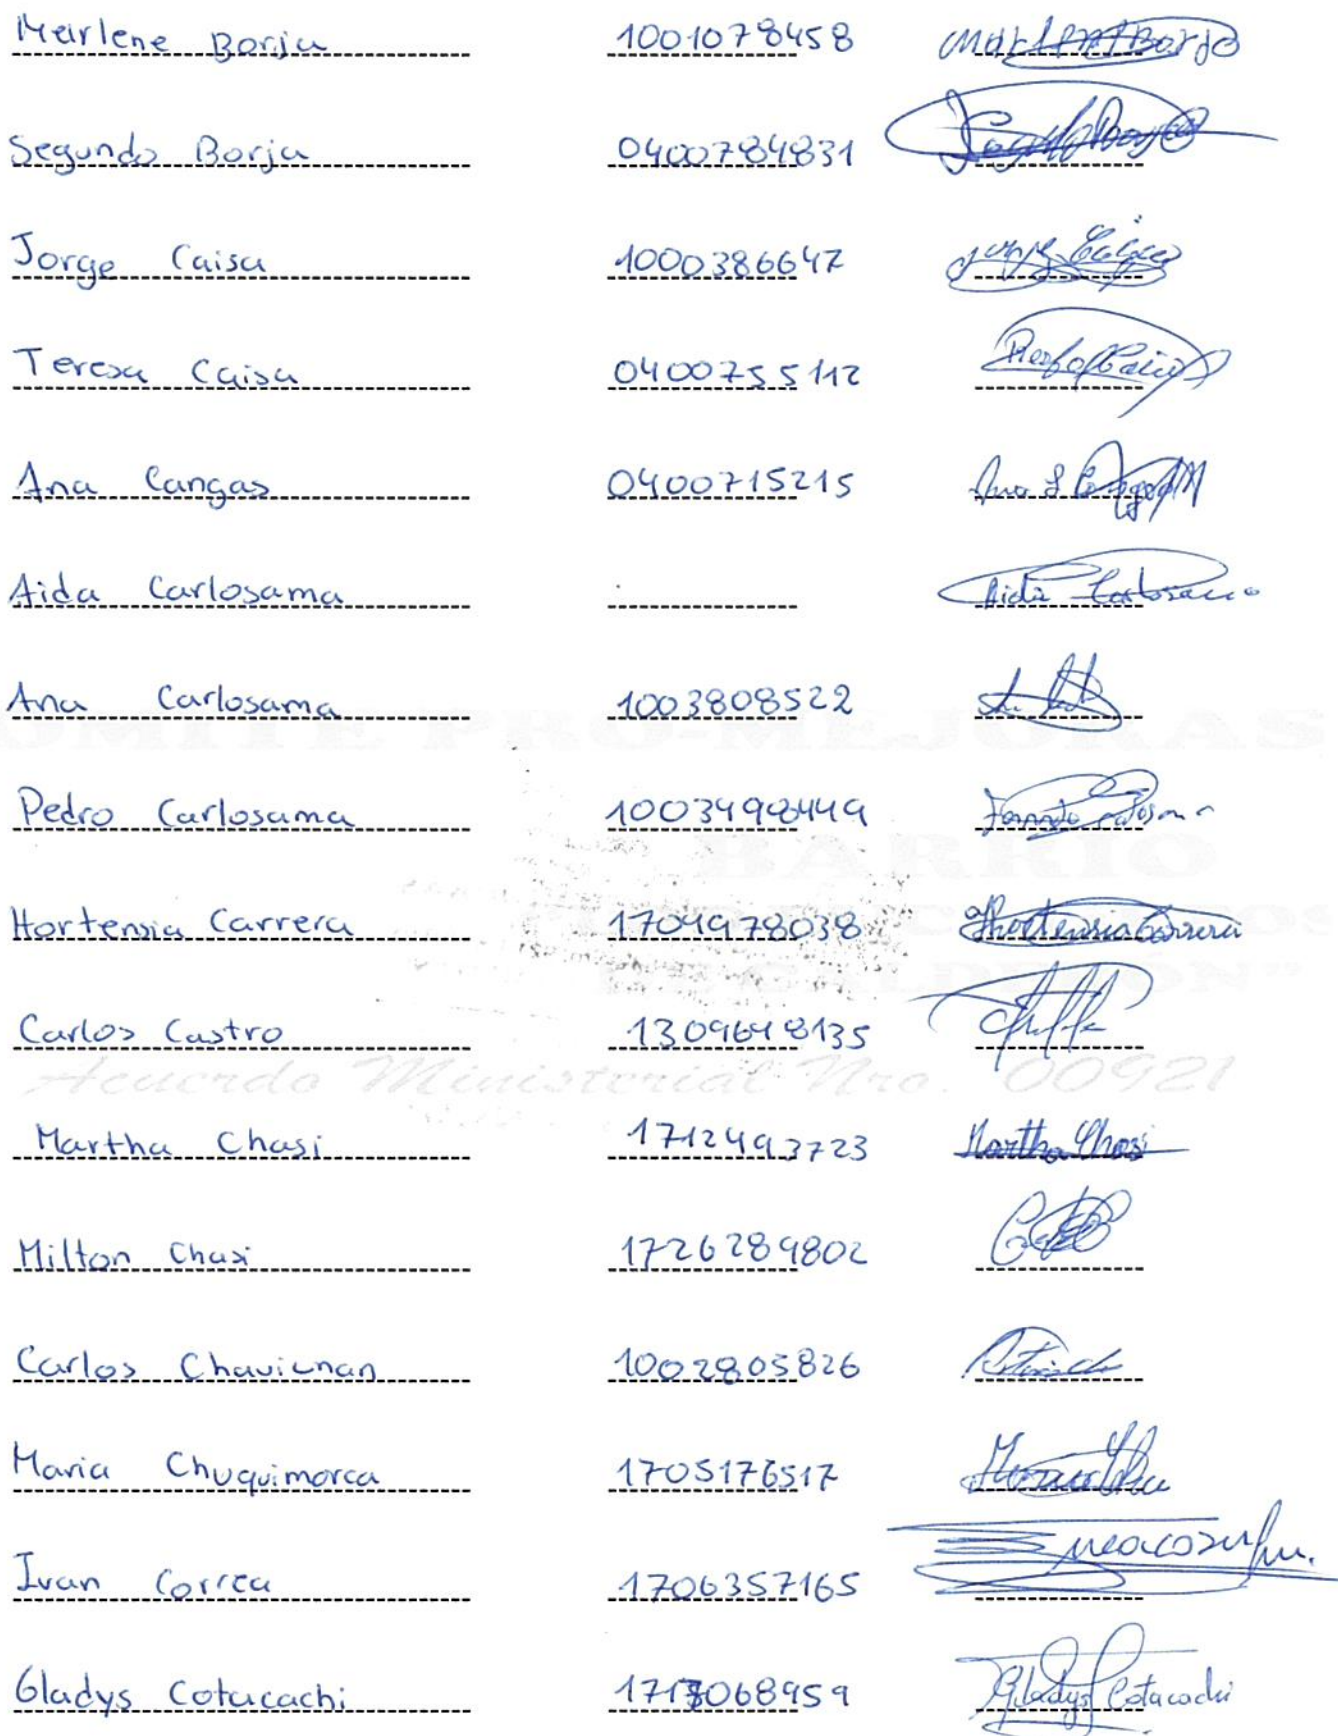 Marlene Borja 1001078458 Marlene Borja
Segundo Borja 0400784831
Jorge Caisa 1000386647 Jorge Caisa
Teresa Caisa 0400755112
Ana Cangas 0400715215 Ana L Cangas
Aida Carlosama Aida Carlosama
Ana Carlosama 1003808522
COMITE PRO-MEJORAS
Pedro Carlosama 1003498449
BARRIO
Hortensia Carrera 1704978038 Hortensia Carrera
DE CALDERÓN"
Carlos Castro 1309648135
Acuerdo Ministerial Nro. 00921
Martha Chasi 1712493723 Martha Chasi
Milton Chasi 1726289802
Carlos Chavicnan 1002805826
Maria Chuquimorca 1705176517
Ivan Correa 1706357165
Gladys Cotacachi 1713068959 Gladys Cotacachi